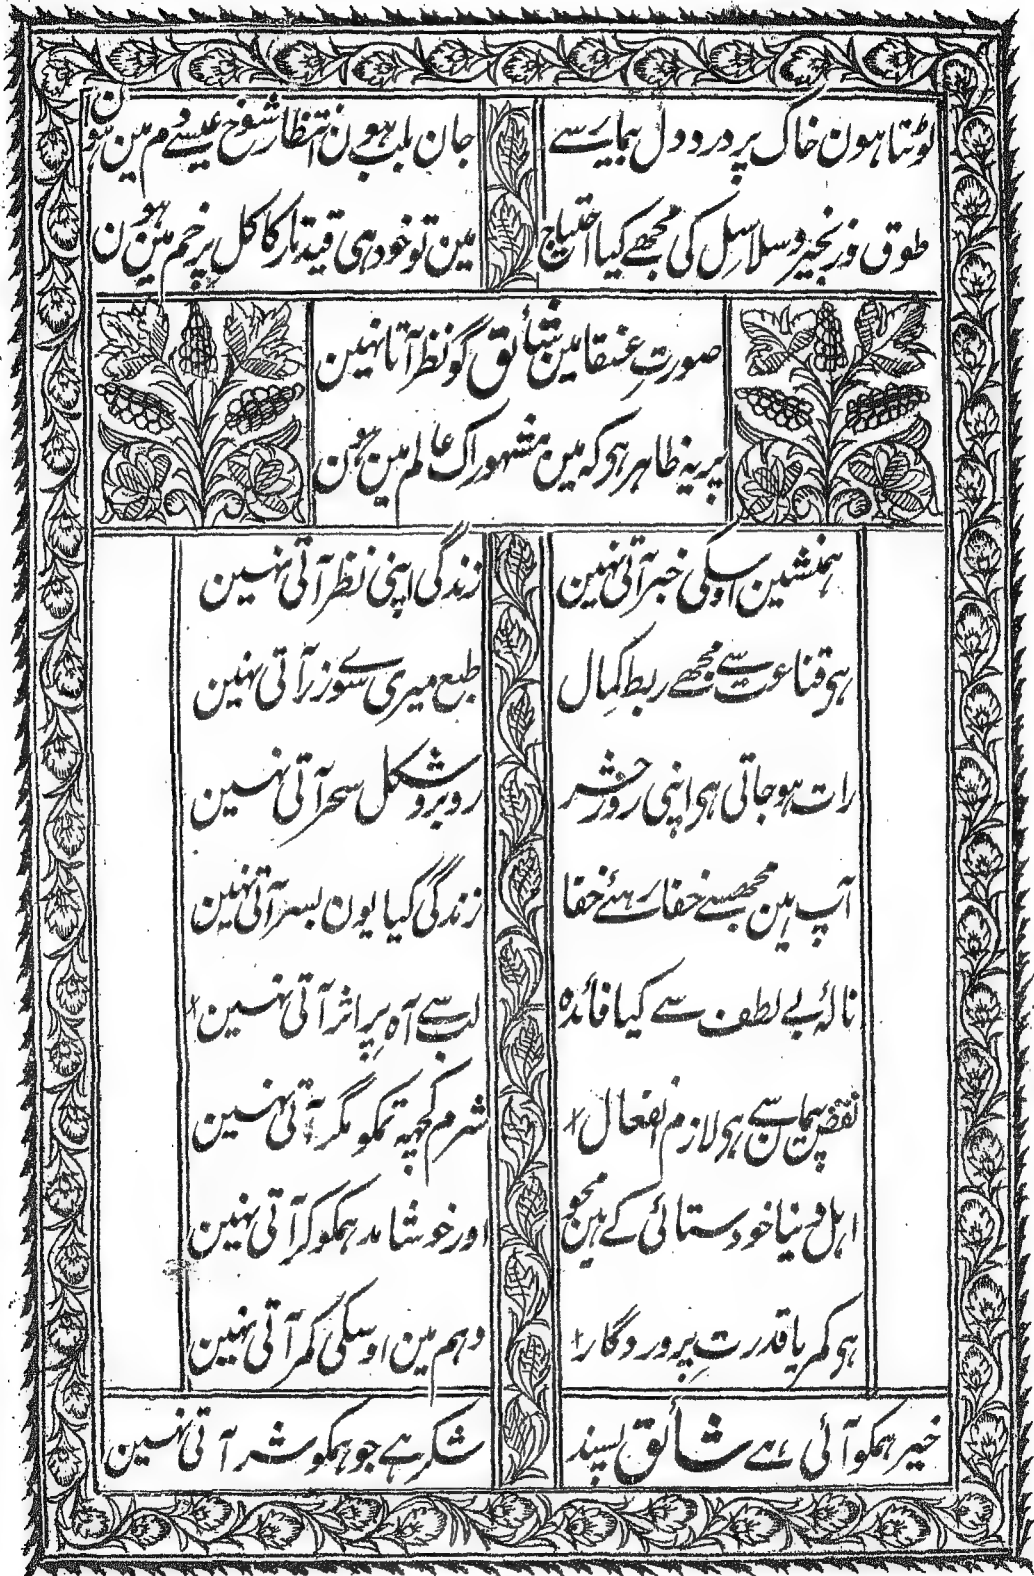 لوٹتا ہون خاک پر درد دل بیمار سے
جان بلب ہون انتظار شوخ عیسے دم مین ہون
طوق و زنجیر و سلاسل کی مجھے کیا احتیاج
مین تو خود ہی قید تار کاکل پر خم مین ہون
صورتِ عنقا مین شائق گو نظر آتا نہین
پر یہ ظاہر ہی کہ مین مشہور اک عالم مین ہون
ہمنشین اوسکی خبر آتی نہین
زندگی اپنی نظر آتی نہین
ہی قناعت سے مجھے ربط کمال
طبع میری سوے زر آتی نہین
رات ہو جاتی ہی اپنی روز حشر
روبرو شکل سحر آتی نہین
آپ ہین مجھسے خفا رہئے خفا
زندگی کیا یون بسر آتی نہین
نالۂ بے لطف سے کیا فائدہ
لب سے آہ پر اثر آتی نہین
نقض پیمان سے ہی لازم انفعال
شرم کچھہ تمکو مگر آتی نہین
اہل دنیا خود ستائی کے ہین محو
اور خوشامد ہمکو کر آتی نہین
ہی کمر یا قدرتِ پروردگار
وہم مین اوسکی کمر آتی نہین
خیر ہمکو آئی ہے شائق پسند
شکر ہے جو ہمکو شر آتی نہین